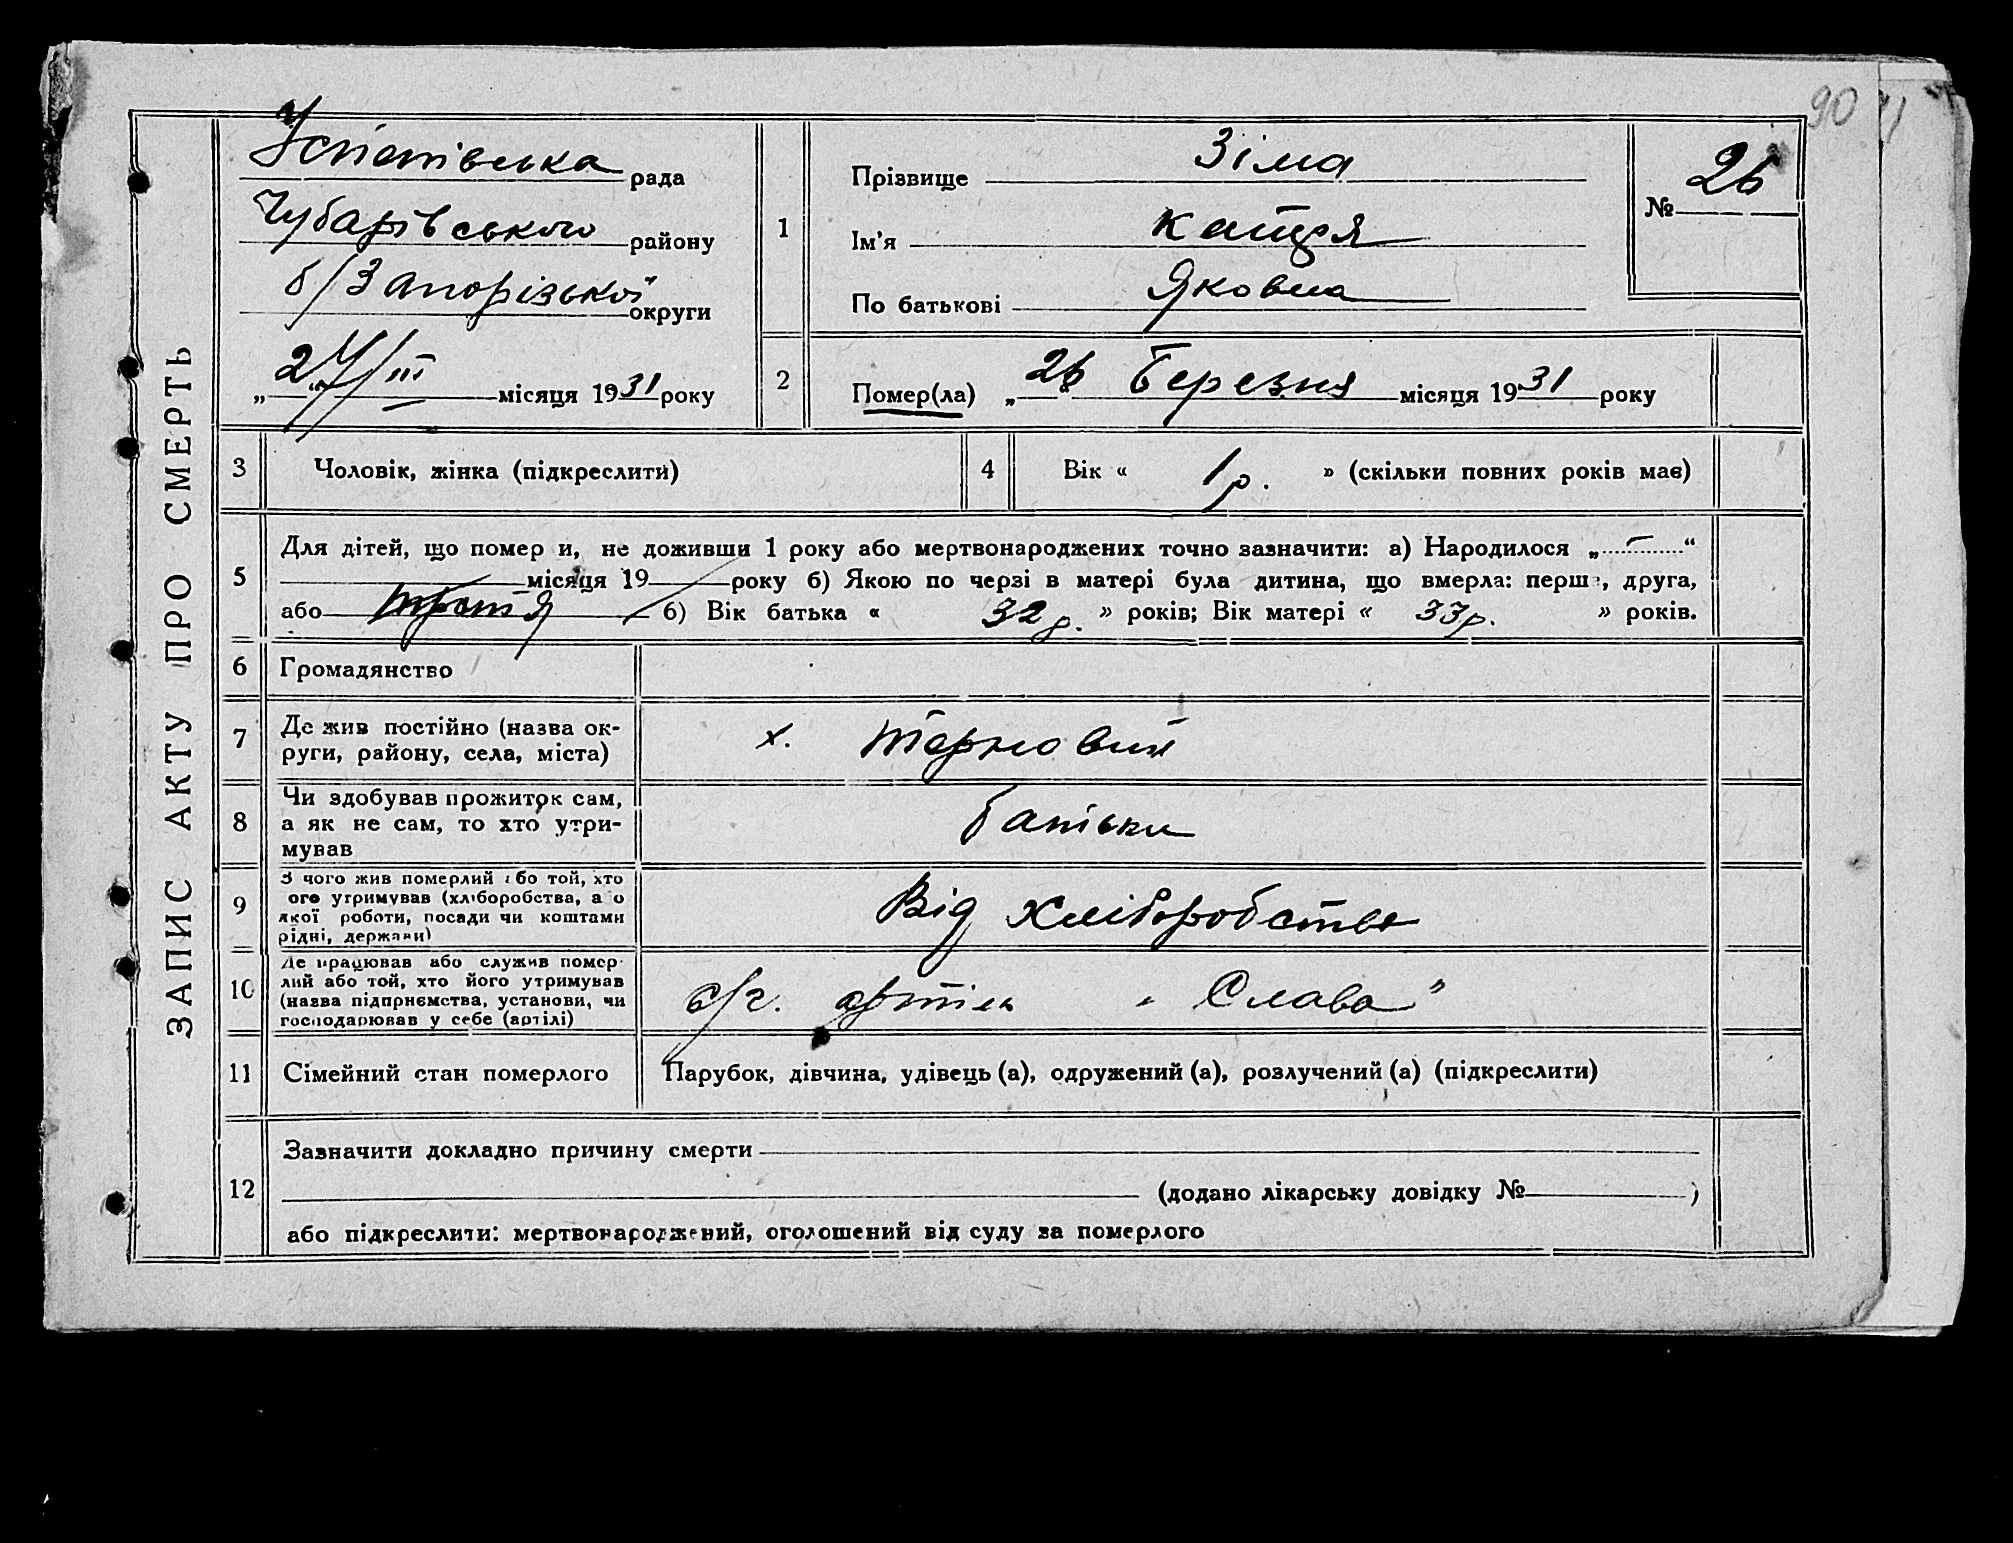 90
ЗАПИС АКТУ ПРО СМЕРТЬ
Успенівська рада
Чубарівського району
б/Запорізької округи
„24“/III місяця 1931 року
1
Прізвище Зіма
Ім'я Катря
По батькові Яковна
№ 26
2
Помер(ла) „26 Березня місяця 1931 року
3 Чоловік, жінка (підкреслити)
4 Вік « 1 р. » (скільки повних років має)
5
Для дітей, що помер и, не доживши 1 року або мертвонароджених точно зазначити: а) Народилося „ – “
місяця 19 року б) Якою по черзі в матері була дитина, що вмерла: перша, друга,
або третя б) Вік батька « 32 р. » років; Вік матері « 33 р. » років.
6 Громадянство
7
Де жив постійно (назва ок-
руги, району, села, міста)
х. Терновий
8
Чи здобував прожиток сам,
а як не сам, то хто утри-
мував
батьки
9
З чого жив померлий або той, хто
ого утримував (хліборобства, а о
якої роботи, посади чи коштами
рідні, держави)
Від хліборобства
10
Де працював або служив помер-
лий або той, хто його утримував
(назва підприємства, установи, чи
господарював у себе (артілі)
с/г. артіль „Слава"
11 Сімейний стан померлого
Парубок, дівчина, удівець (а), одружений (а), розлучений (а) (підкреслити)
12
Зазначити докладно причину смерти
(додано лікарську довідку № )
або підкреслити: мертвонароджений, оголошений від суду за померлого